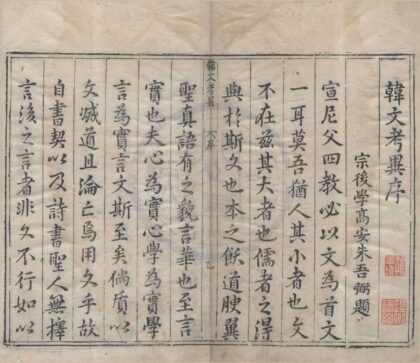 韓文考異序
宗後學高安朱吾弼題
宣尼父四教必以文為首文
一耳莫吾猶人其小者也文
不在茲其大者也儒者之得
與於斯文也本之飲道腴翼
聖真語有之貌言華也至言
實也夫心為實心學為實學
言為實言文斯至矣倘質以
文滅道且淪亡烏用文乎故
自書契以及詩書聖人無擇
言後之言者非文不行如以
韓文考異
序